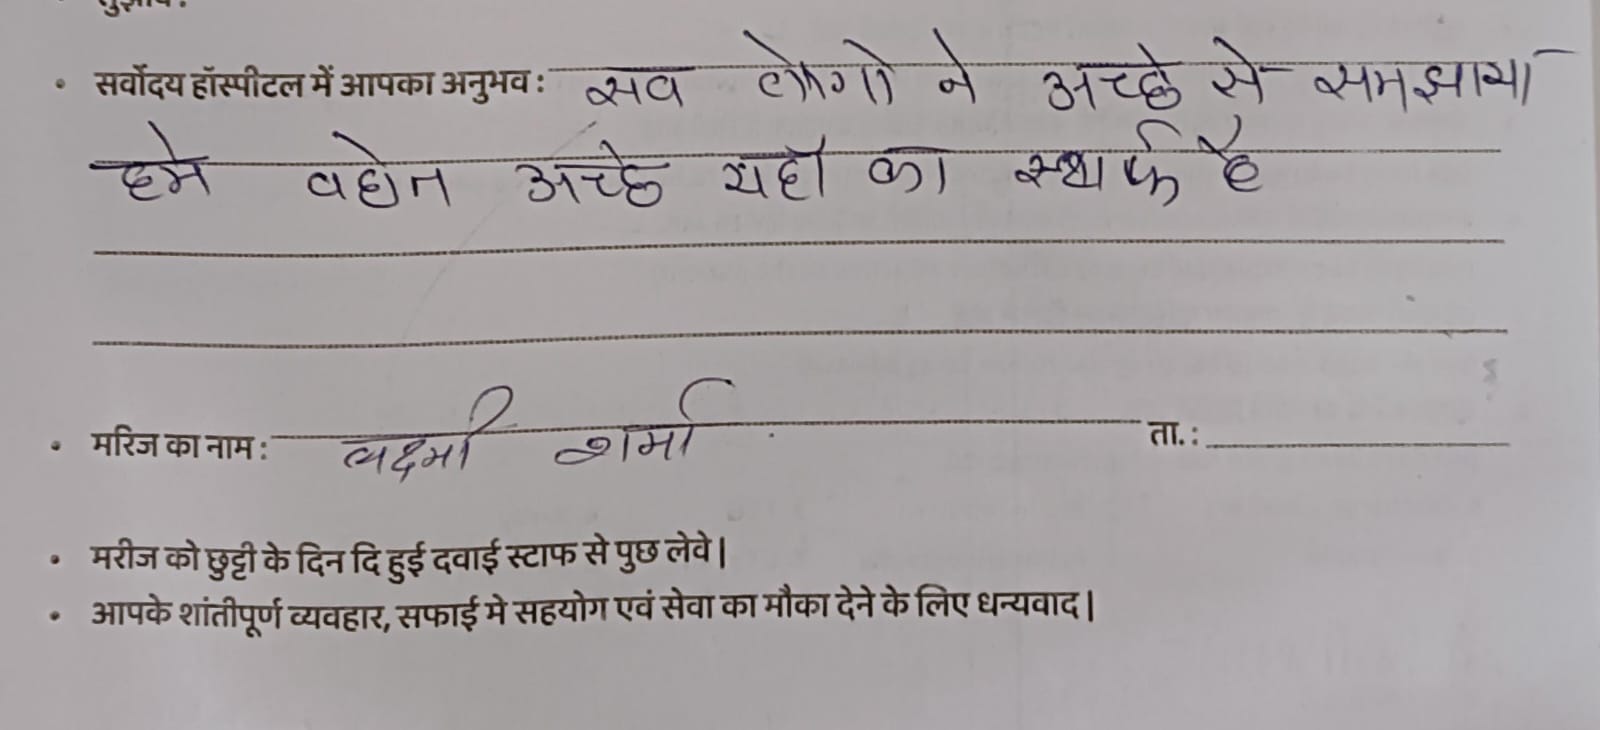 सुझाव:
• सर्वोदय हॉस्पीटल में आपका अनुभव: सव लोगो ने अच्छे से समझाया
हमे वहोत अच्छे यहाँ का स्थार्फ है
• मरिज का नाम: लक्ष्मी शर्मा ता.:
• मरीज को छुट्टी के दिन दि हुई दवाई स्टाफ से पुछ लेवे।
• आपके शांतीपूर्ण व्यवहार, सफाई मे सहयोग एवं सेवा का मौका देने के लिए धन्यवाद।